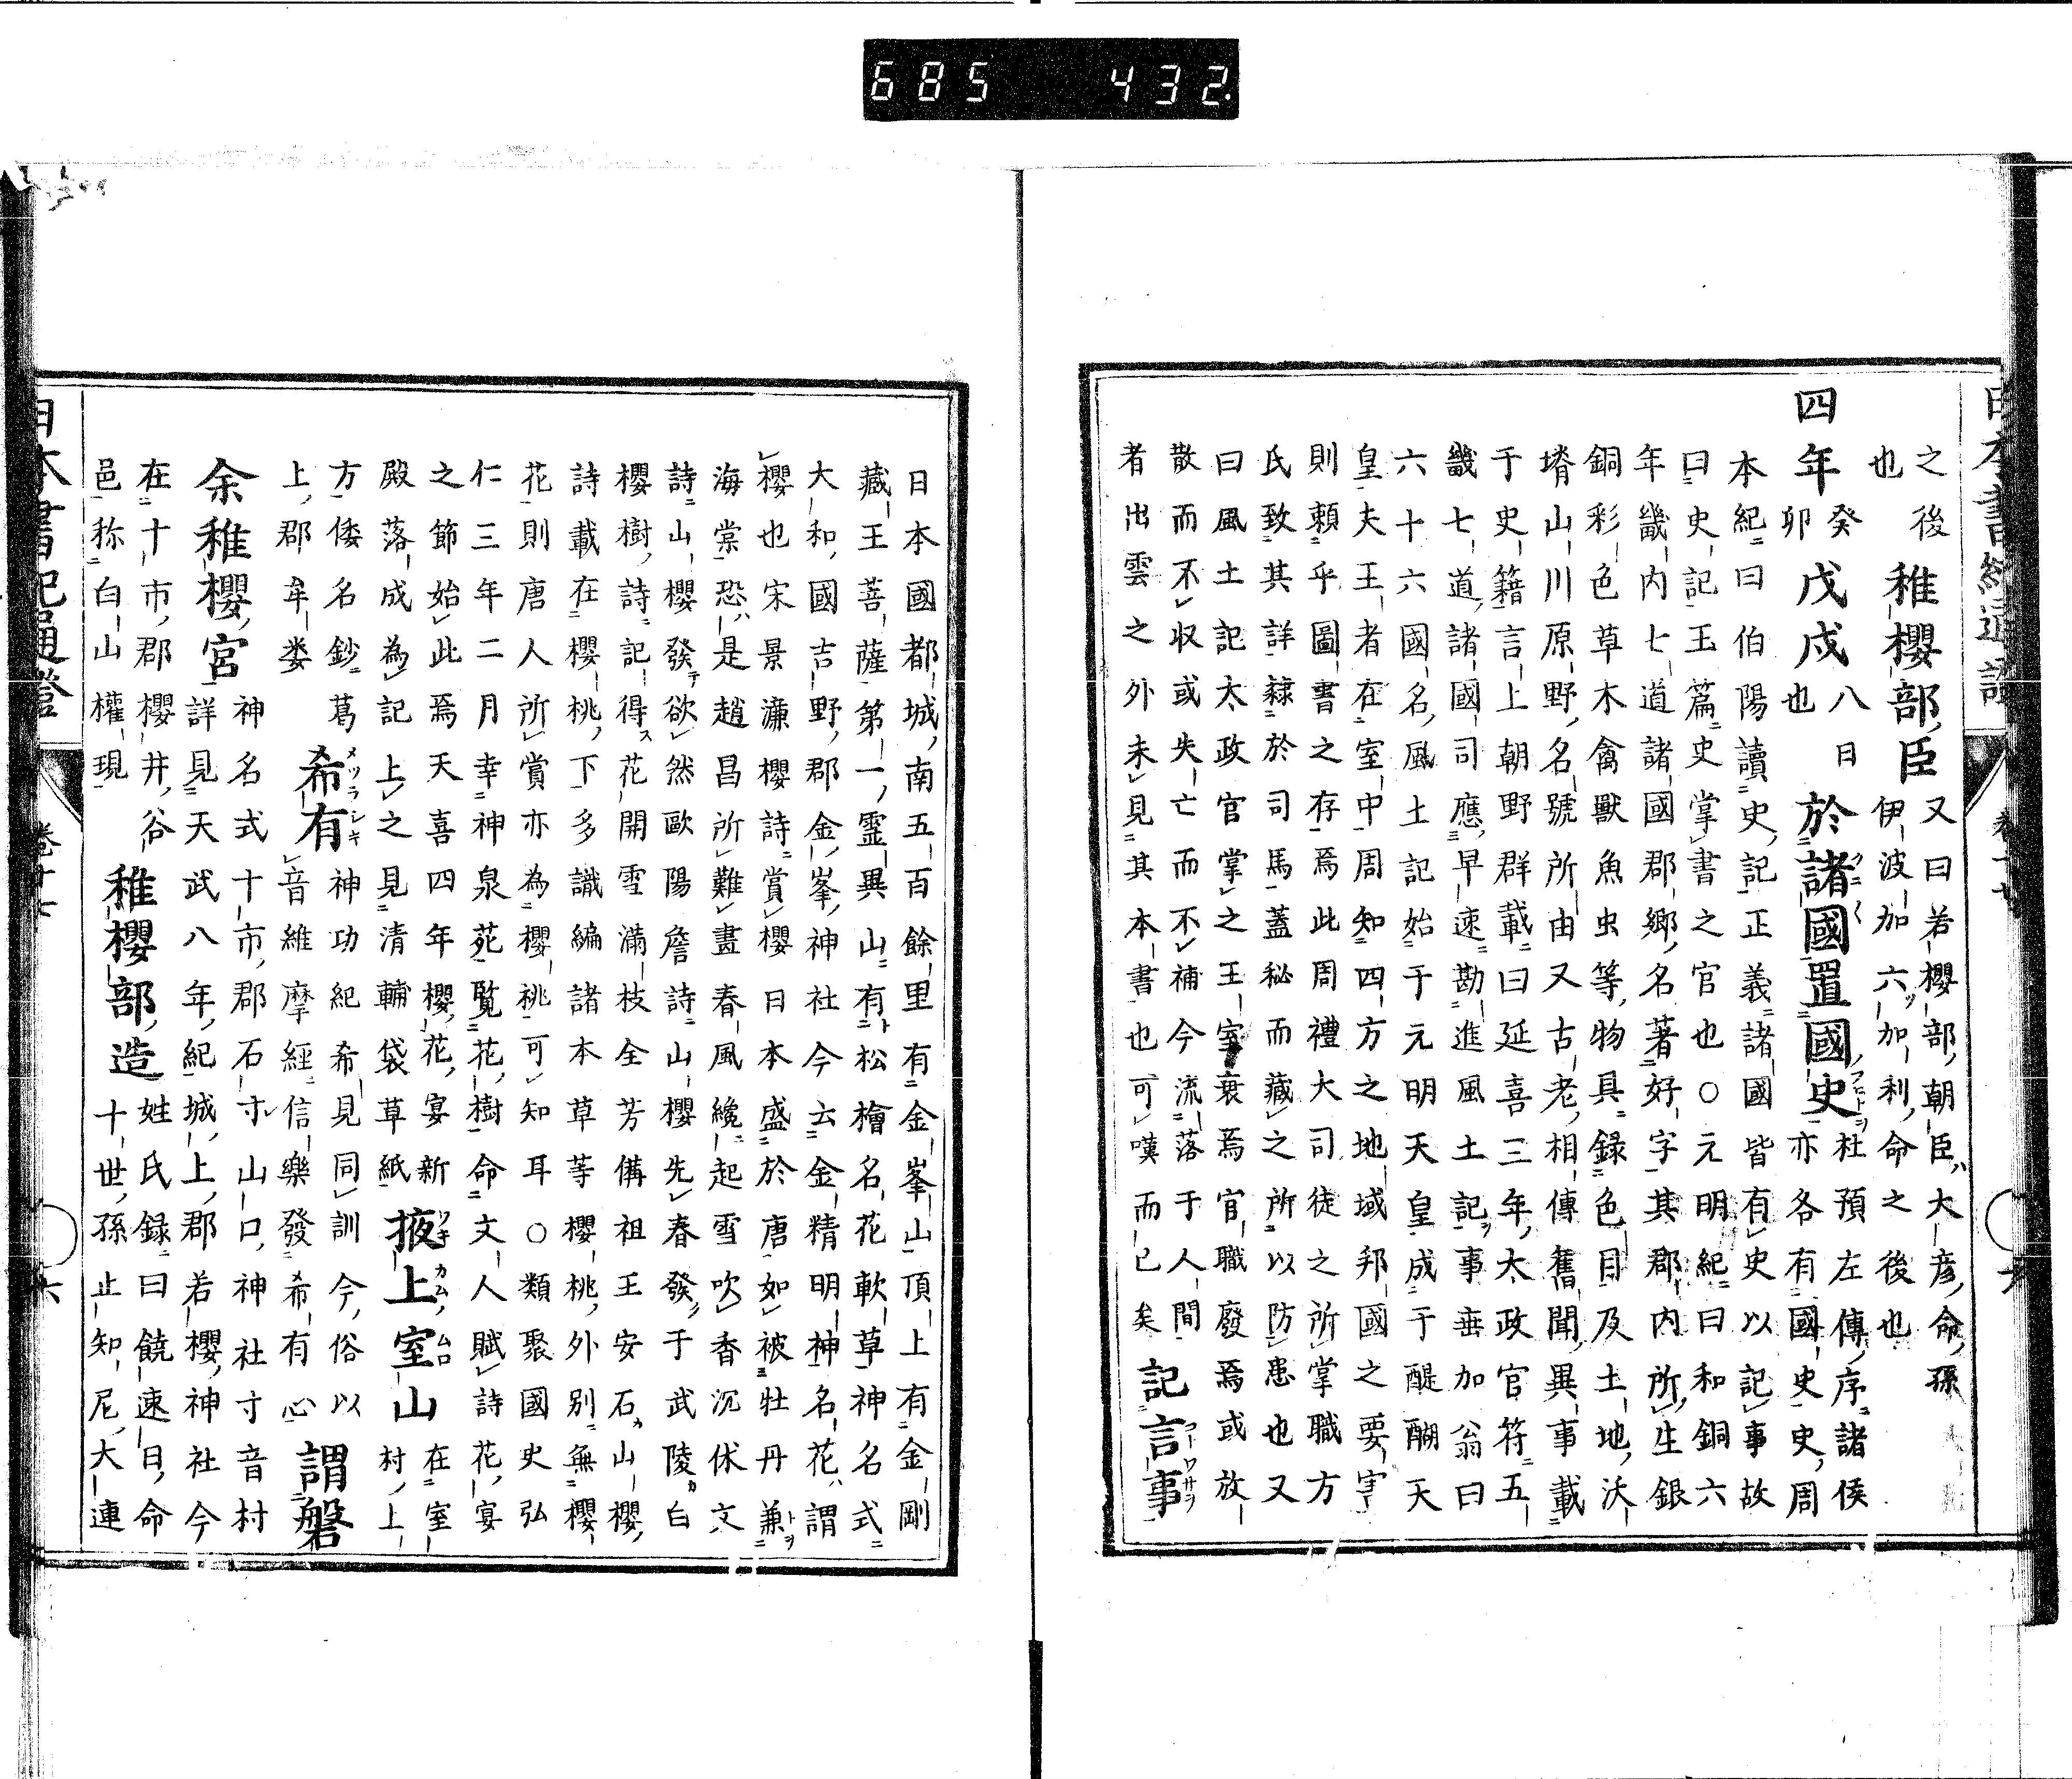 685 432
之後
也
稚櫻部臣
又曰若櫻部朝臣大彦命孫
伊波加六加利命之後也
四年
癸
卯
戊戌
八日
也
於諸國置國史
杜預左傳序諸侯
亦各有國史史周
本紀曰伯陽讀史記正義諸國皆有史以記事故
曰史記玉篇史掌書之官也○元明紀曰和銅六
年畿内七道諸國郡郷名著好字其郡内所生銀
銅彩色草木禽獸魚虫等物具録色目及土地沃
塉山川原野名號所由又古老相傳舊聞異事載
于史籍言上朝野群載曰延喜三年太政官符五
畿七道諸國司應早速勘進風土記事垂加翁曰
六十六國名風土記始于元明天皇成于醍醐天
皇夫王者在室中周知四方之地域邦國之要害
則頼乎圖書之存焉此周禮大司徒之所掌職方
氏致其詳隷於司馬蓋秘而藏之所以防患也又
曰風土記太政官掌之王室衰焉官職廢焉或放
散而不収或失亡而不補今流落于人間
者出雲之外未見其本書也可嘆而已矣
記言事
日本國都城南五百餘里有金峯山頂上有金剛
藏王菩薩第一靈異山有松檜名花軟草神名式
大和國吉野郡金峯神社今云金精明神名花謂
櫻也宋景濂櫻詩賞櫻日本盛於唐如被牡丹兼
海棠恐是趙昌所難畫春風纔起雪吹香沉休文
詩山櫻發欲然歐陽詹詩山櫻先春發于武陵白
櫻樹詩記得花開雪滿枝全芳備祖王安石山櫻
詩載在櫻桃下多識編諸本草等櫻桃外別無櫻
花則唐人所賞亦為櫻桃可知耳○類聚國史弘
仁三年二月幸神泉苑覧花樹命文人賦詩花宴
之節始此焉天喜四年櫻花宴新
殿落成為記上之見清輔袋草紙
掖上室山
在室
村上
方倭名鈔葛
上郡牟婁
希有
神功紀希見同訓今俗以
音維摩經信樂發希有心
謂磐
余稚櫻宮
神名式十市郡石寸山口神社寸音村
詳見天武八年紀城上郡若櫻神社今
在十市郡櫻井谷
邑称白山權現
稚櫻部造
姓氏録曰饒速日命
十世孫止知尼大連